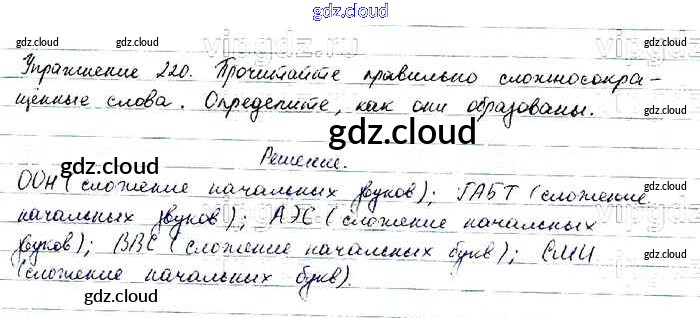 gdz.cloud
gdz.cloud gdz.cloud vipgdz.ru gdz.cloud
Упражнение 220. Прочитайте правильно сложносокра-
щённые слова. Определите, как они образованы.
gdz.cloud
gdz.cloud Решение.
ООН (сложение начальных звуков); ГАБТ (сложение
начальных звуков); АЭС (сложение начальных
звуков); ВВС (сложение начальных букв); СМИ
(сложение начальных букв).
gdz.cloud gdz.cloud
gdz.cloud